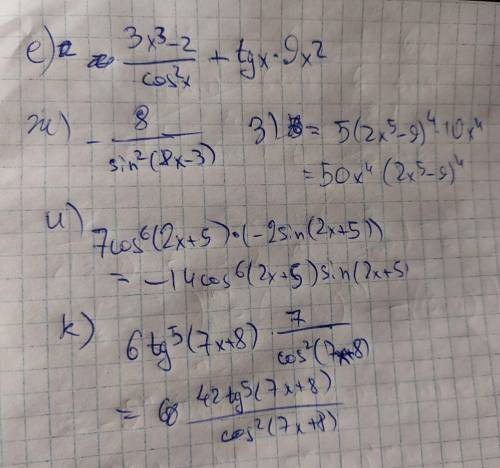 е) (3x³-2)/(cos²x) + tgx·9x²
ж) - 8/(sin²(8x-3)) з) = 5(2x⁵-9)⁴·10x⁴
= 50x⁴(2x⁵-9)⁴
и)
7cos⁶(2x+5)·(-2sin(2x+5))
= -14cos⁶(2x+5)sin(2x+5)
к)
6tg⁵(7x+8)·7/(cos²(7x+8))
= (42tg⁵(7x+8))/(cos²(7x+8))